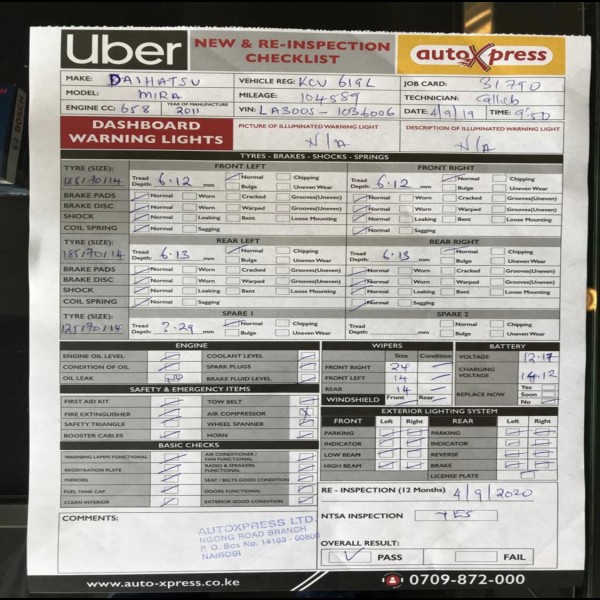 Uber NEW & RE-INSPECTION CHECKLIST autoXpress
MAKE: DAIHATSU VEHICLE REG: KCU 619L JOB CARD: 31790
MODEL: MIRA MILEAGE: 104559 TECHNICIAN: Calleb
ENGINE CC: 658 YEAR OF MANUFACTURE 2011 VIN: LA300S - 1036006 DATE: 4/9/19 TIME: 9:50
DASHBOARD WARNING LIGHTS PICTURE OF ILLUMINATED WARNING LIGHT N/A DESCRIPTION OF ILLUMINATED WARNING LIGHT N/A
TYRES - BRAKES - SHOCKS - SPRINGS
TYRE (SIZE): FRONT LEFT FRONT RIGHT
185/70/14 Tread Depth: 6.12 mm Normal Chipping Bulge Uneven Wear Tread Depth: 6.12 mm Normal Chipping Bulge Uneven Wear
BRAKE PADS Normal Worn Cracked Grooves(Uneven) Normal Worn Cracked Grooves(Uneven)
BRAKE DISC Normal Worn Warped Grooves(Uneven) Normal Worn Warped Grooves(Uneven)
SHOCK Normal Leaking Bent Loose Mounting Normal Leaking Bent Loose Mounting
COIL SPRING Normal Sagging Normal Sagging
TYRE (SIZE): REAR LEFT REAR RIGHT
185/70/14 Tread Depth: 6.13 mm Normal Chipping Bulge Uneven Wear Tread Depth: 6.13 mm Normal Chipping Bulge Uneven Wear
BRAKE PADS Normal Worn Cracked Grooves(Uneven) Normal Worn Cracked Grooves(Uneven)
BRAKE DISC Normal Worn Warped Grooves(Uneven) Normal Worn Warped Grooves(Uneven)
SHOCK Normal Leaking Bent Loose Mounting Normal Leaking Bent Loose Mounting
COIL SPRING Normal Sagging Normal Sagging
TYRE (SIZE): SPARE 1 SPARE 2
125/90/14 Tread Depth: 3.29 mm Normal Chipping Bulge Uneven Wear Tread Depth: mm Normal Chipping Bulge Uneven Wear
ENGINE
ENGINE OIL LEVEL COOLANT LEVEL
CONDITION OF OIL SPARK PLUGS
OIL LEAK BRAKE FLUID LEVEL
SAFETY & EMERGENCY ITEMS
FIRST AID KIT TOW BELT
FIRE EXTINGUISHER AIR COMPRESSOR X
SAFETY TRIANGLE WHEEL SPANNER
BOOSTER CABLES HORN
BASIC CHECKS
WARNING LAMPS FUNCTIONAL AIR CONDITIONER / FAN FUNCTIONAL
REGISTRATION PLATE RADIO & SPEAKERS FUNCTIONAL
MIRRORS SEAT / BELTS GOOD CONDITION
FUEL TANK CAP DOORS FUNCTIONAL
CLEAN INTERIOR EXTERIOR GOOD CONDITION
WIPERS
Size Condition
FRONT RIGHT 24
FRONT LEFT 14
REAR 14
WINDSHIELD Front Rear
BATTERY
VOLTAGE 12.17
CHARGING VOLTAGE 14.12
REPLACE NOW Yes Soon No
EXTERIOR LIGHTING SYSTEM
FRONT Left Right REAR Left Right
PARKING PARKING
INDICATOR INDICATOR
LOW BEAM REVERSE
HIGH BEAM BRAKE
LICENSE PLATE
RE - INSPECTION (12 Months) 4/9/2020
NTSA INSPECTION YES
OVERALL RESULT:
PASS FAIL
COMMENTS:
AUTOXPRESS LTD.
NGONG ROAD BRANCH
P. O. Box No. 14163 - 00800
NAIROBI
www.auto-xpress.co.ke 0709-872-000